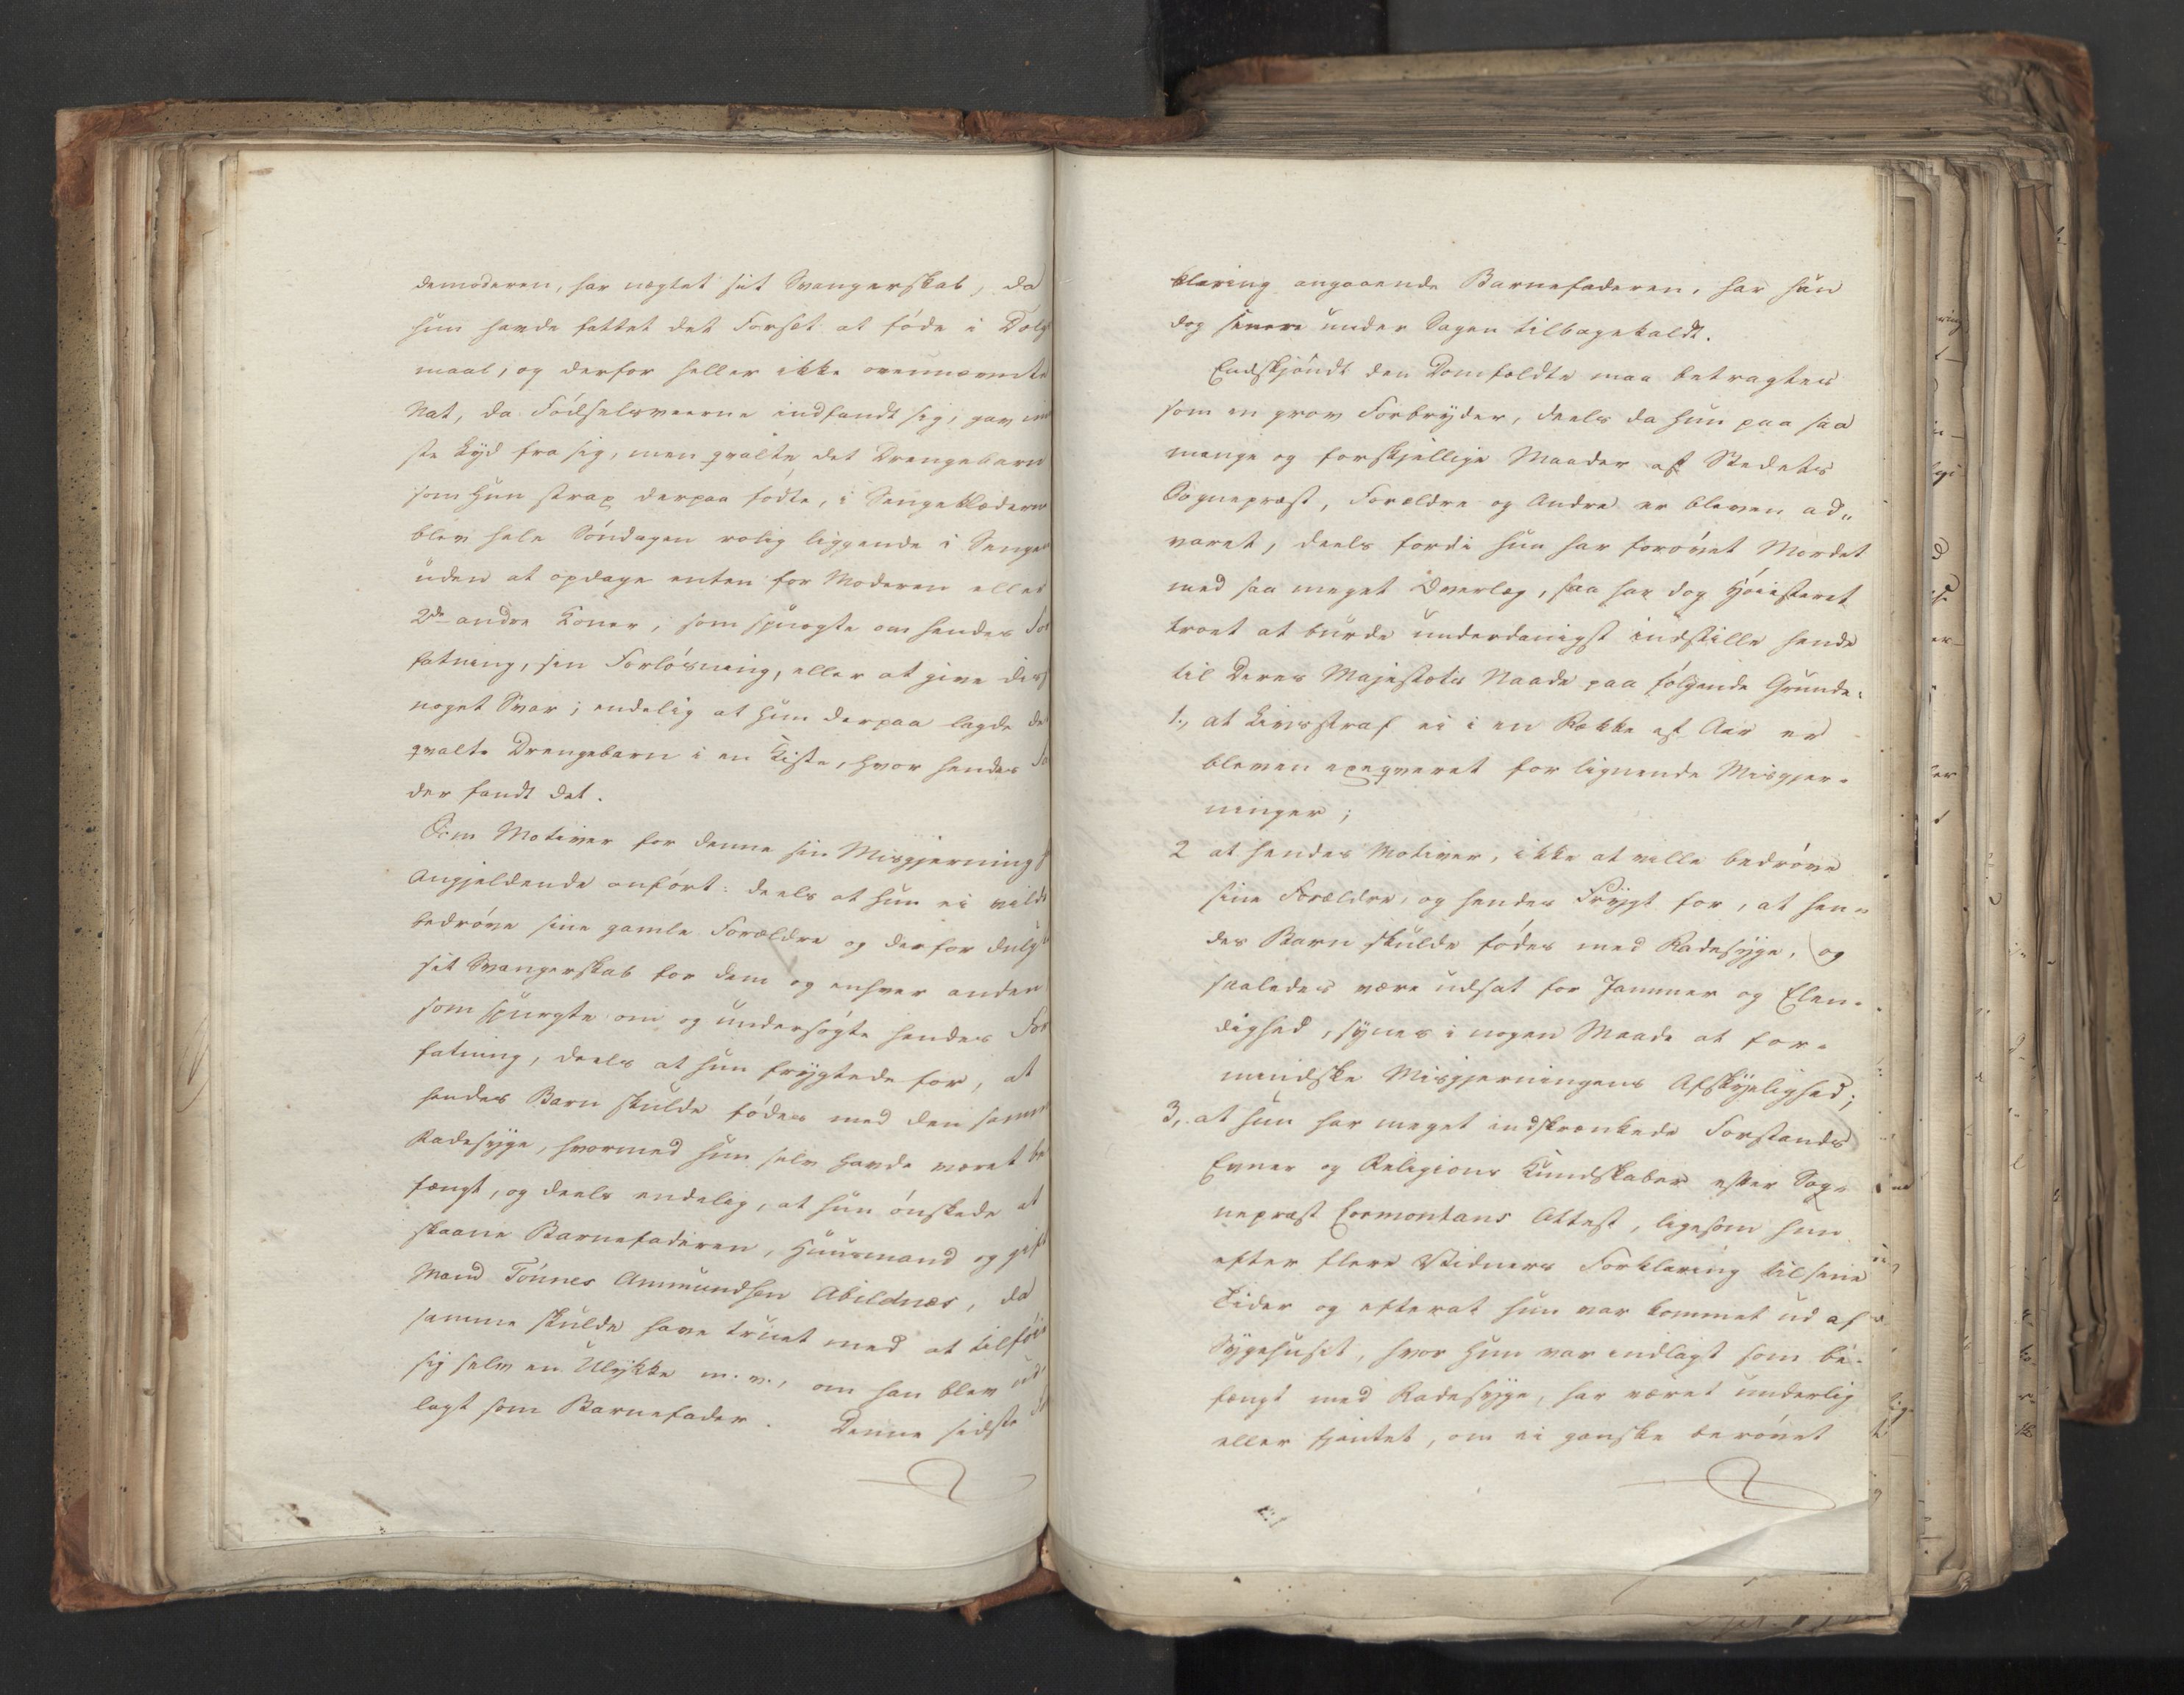 demoderen, har nægtet sit Svangerskab, da
hun havde fattet det Forsæt at føde i Dølg
maal, og derfor heller ikke ovennævnte
Nat, da Fødselsveerne indfandt sig, gav
ste Lyd fra sig, men qvalte det Drengebarn
som hun strax derpaa fødte, i Sengeklæderne
blev hele Søndagen rolig liggende i Sengen
uden at opdage enten for Moderen eller
2de andre Koner, som spurgte om hendes For
fatning, sin Forløsning, eller at give dess
noget Svar; endelig at hun derpaa lagde det
qvalte Drengebarn i en Kiste, hvor hendes Fa
der fandt det.
Som Motiver for denne sin Misgjerning
Angjeldende anført: deels at hun ei vilde
bedrøve sine gamle Forældre og derfor dulgte
sit Svangerskab for dem og enhver anden
som spurgte om og undersøgte hendes For
fatning, deels at hun frygtede for, at
hendes Barn skulde fødes med den samme
Radesyge, hvormed hun selv havde været be
fængt, og deels endelig, at hun ønskede at
skaane Barnefaderen, Huusmand og gift
Mand Tønnes Ammundsen Abildnæs, da
samme skulde have truet med at tilføie
sig selv en Ulykke m. v., om han blev ud
lagt som Barnefader. Denne sidste Fo
klaring angaaende Barnefaderen, har hun
dog senere under Sagen tilbagekaldt.
Endskjøndt den Domfældte maa betragtes
som en grov Forbryder, deels da hun paa saa
mange og forskjellige Maader af Stedets
Sognepræst, Forældre og Andre er bleven ad„
varet, deels fordi hun har forøvet Mordet
med saa meget Overlæg, saa har dog Høiesteret
troet at burde underdanigst indstille hende
til Deres Majestæts Naade paa følgende Grunde:
1., at Livsstraf ei i en Række af Aar er
bleven exeqveret for lignende Misgjer-
ninger;
2 at hendes Motiver, ikke at ville bedrøve
sine Forældre, og hendes Frygt for, at hen-
des Barn skulde fødes med Radesyge, og
saaledes være udsat for Jammer og Elen-
dighed, synes i nogen Maade at for-
mindske Misgjerningens Afskyelighed;
3, at hun har meget indskrænkede Forstands
Evner og Religions Kundskaber efter Sog-
nepræst Cormontans Attest, ligesom hun
efter flere Vidners Forklaring til sine
Tider og efterat hun var kommet ud af
Sygehuset, hvor hun var indlagt som be-
fængt med Radesyge, har været underlig
eller fjantet, om ei ganske berøvet